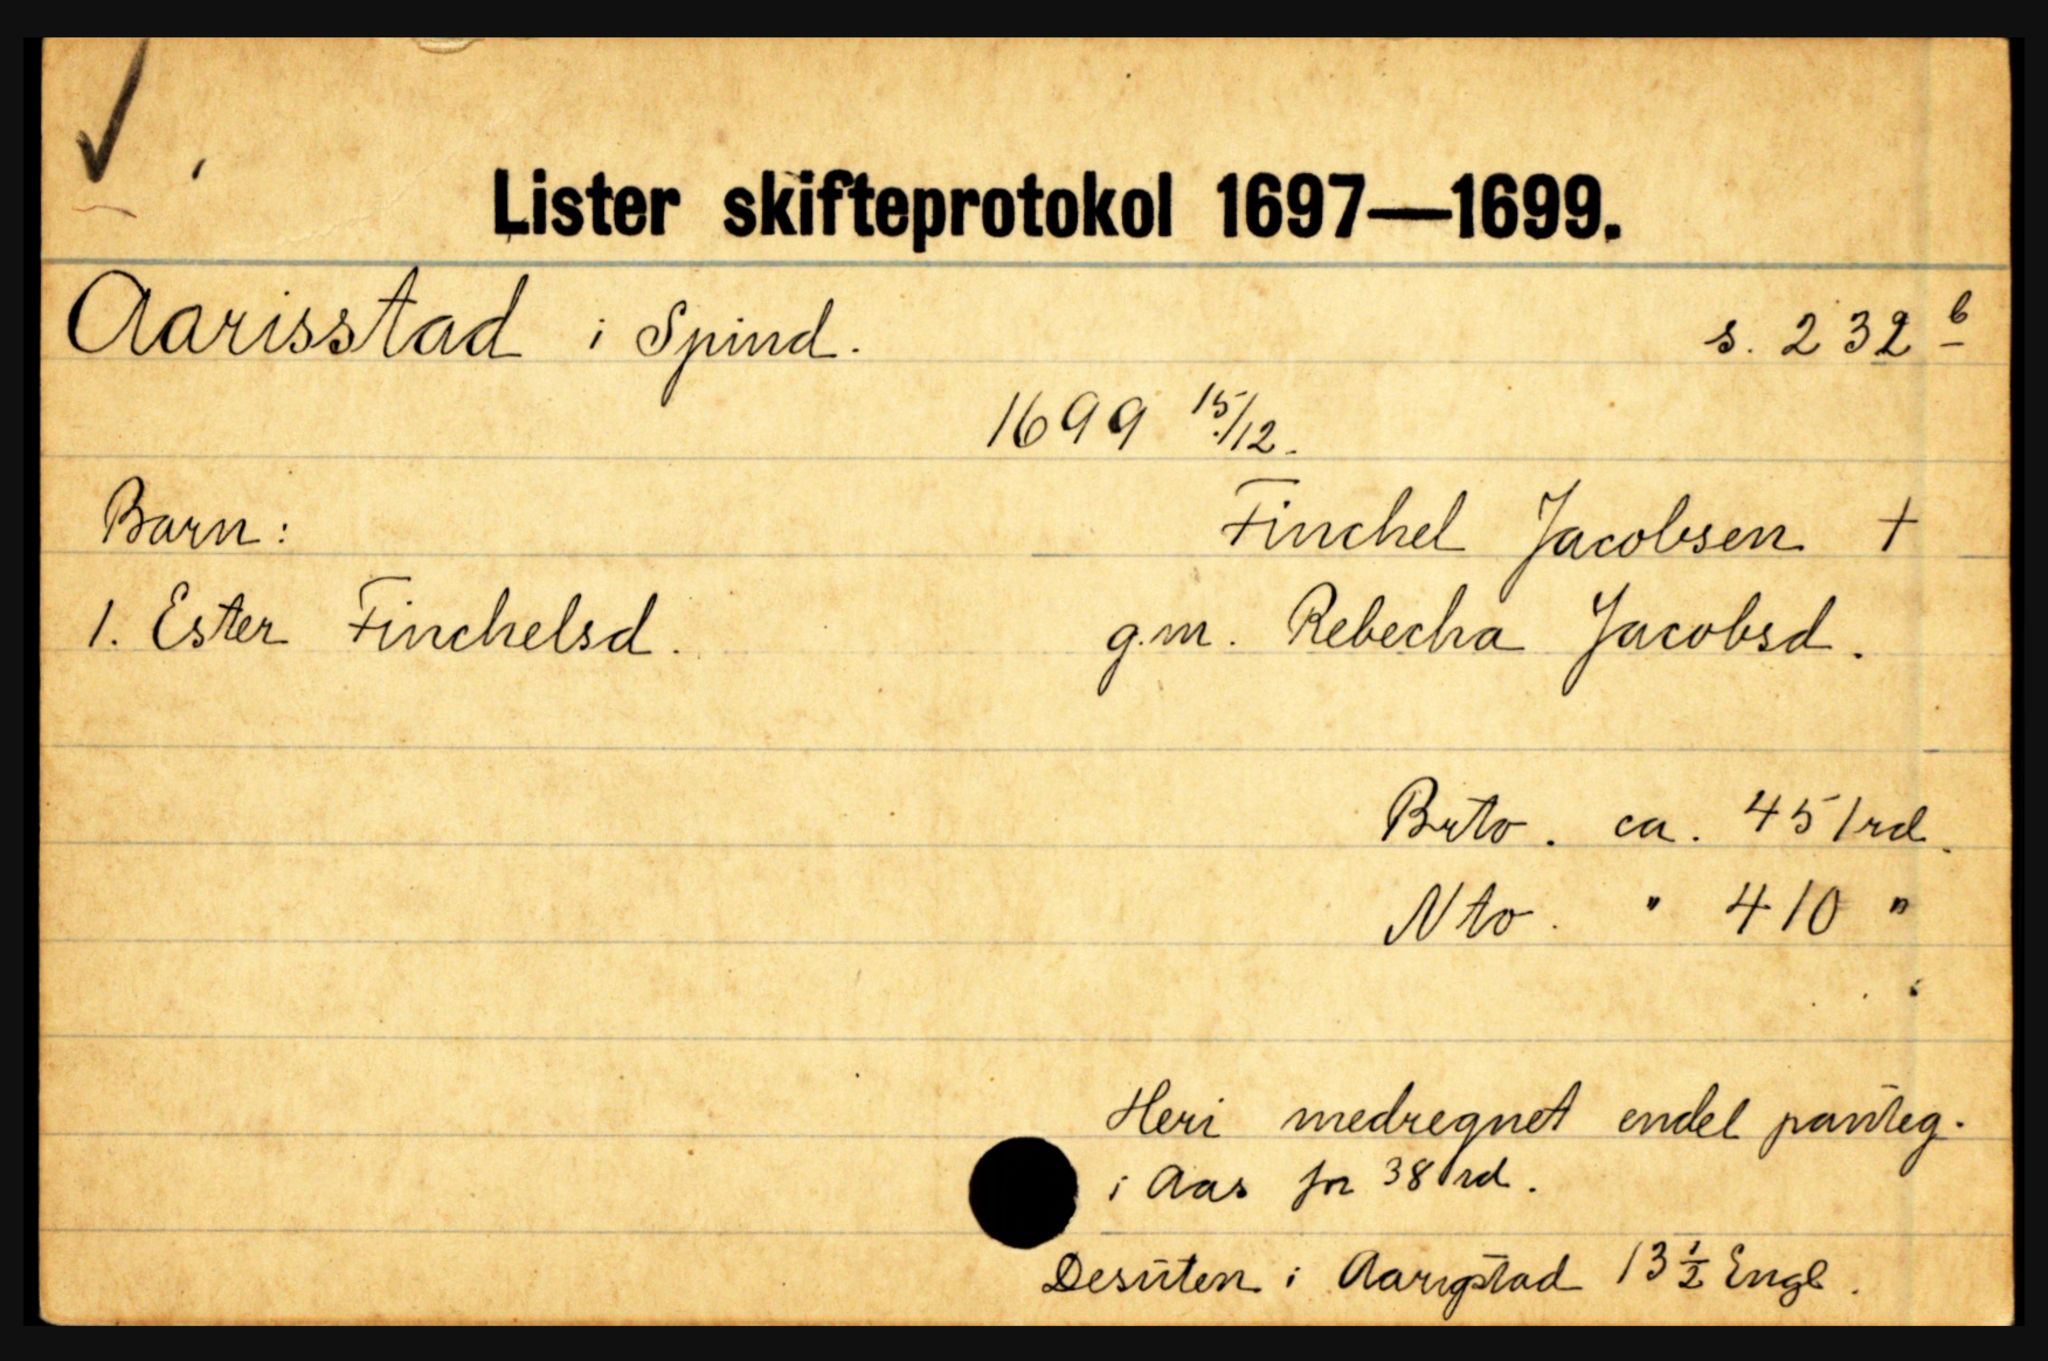 Lister skifteprotokol 1697—1699.
Aarisstad i Spind. s. 232 b
1699 15/12.
Barn: Finchel Jacobsen †
1. Ester Finchelsd. g.m. Rebecha Jacobsd.
Brto. ca. 451 rd.
Nto. " 410 "
Heri medregnet endel panteg.
i Aas for 38 rd.
Desuten i Aarigstad 13 1/2 Engl.